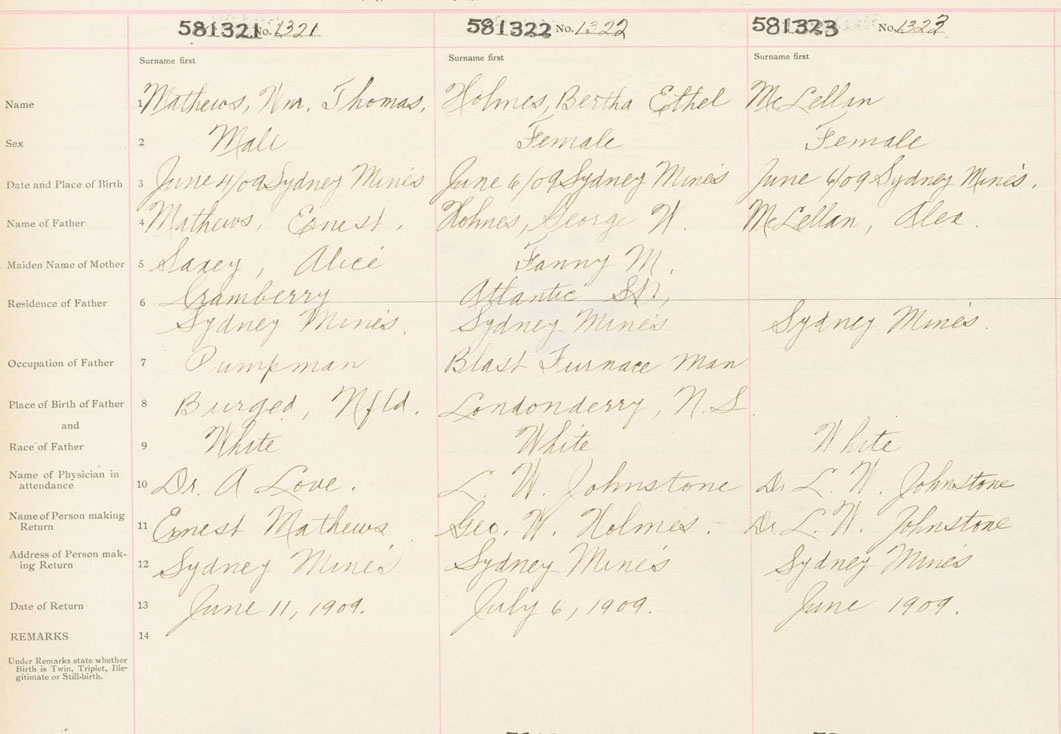 581321 No. 1321 581322 No. 1322 581323 No. 1323
Surname first Surname first Surname first
Name 1 Mathews, Wm. Thomas, Holmes, Bertha Ethel McLellan
Sex 2 Male Female Female
Date and Place of Birth 3 June 4/09 Sydney Mines June 6/09 Sydney Mines June 6/09 Sydney Mines.
Name of Father 4 Mathews, Ernest. Holmes, George W. McLellan, Alex.
Maiden Name of Mother 5 Saxey, Alice Fanny M.
Residence of Father 6 Cramberry Atlantic St,
Sydney Mines. Sydney Mines Sydney Mines.
Occupation of Father 7 Pumpman Blast Furnace Man
Place of Birth of Father 8 Burgeo, Nfld. Londonderry, N.S.
and
Race of Father 9 White White White
Name of Physician in
attendance 10 Dr. A Love. L. W. Johnstone Dr L. W. Johnstone
Name of Person making
Return 11 Ernest Mathews Geo. W. Holmes. Dr. L. W. Johnstone
Address of Person mak-
ing Return 12 Sydney Mines Sydney Mines Sydney Mines
Date of Return 13 June 11, 1909. July 6, 1909. June 1909.
REMARKS 14
Under Remarks state whether
Birth is Twin, Triplet, Ille-
gitimate or Still-birth.